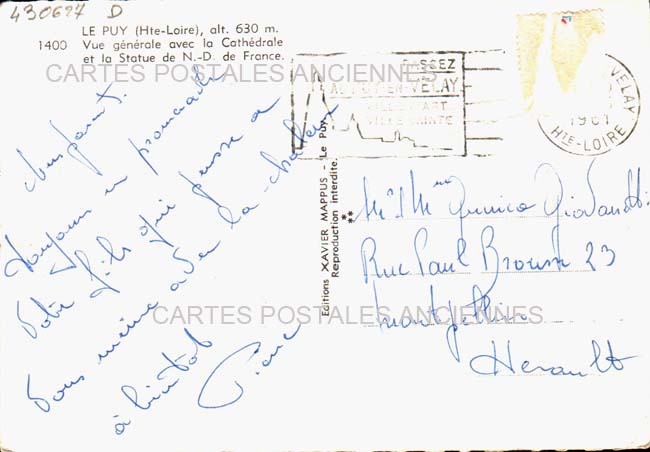 430627 D
LE PUY (Hte-Loire), alt. 630 m.
1400 Vue générale avec la Cathédrale
et la Statue de N.-D. de France.
CARTES POSTALES ANCIENNES
PASSEZ
AU PUY-EN-VELAY
VILLE D'ART
VILLE SAINTE
VELAY
HTE-LOIRE
Chers parents.
Toujours en promenade
Votre fils qui pense a
Vous même avec la chaleur
à bientot
Pierre
Editions XAVIER MAPPUS - Le Puy
Reproduction interdite.
**
Mr Mme
Rue Paul Brousse 23
Montpellier
Herault
CARTES POSTALES ANCIENNES